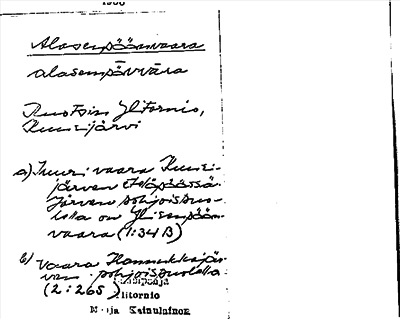 Alasenpäänvaara
alasempävvāra
Ruotsin Ylitornio,
Kuusijärvi
a) Suuri vaara Kuusi-
järven eteläpäässä.
Järven pohjoispuo-
lella on Ylisenpään-
vaara (1:34 B)
b) Vaara Hannukkajär-
ven pohjoispuolella.
(2:265)
Ylitornio
Maija Kainulainen